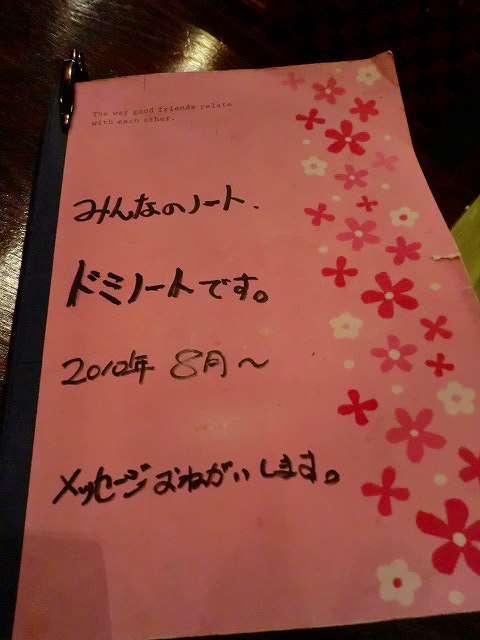 The way good friends relate
with each other.
みんなのノート.
ドミノートです。
2012年 8月～
メッセージおねがいします。